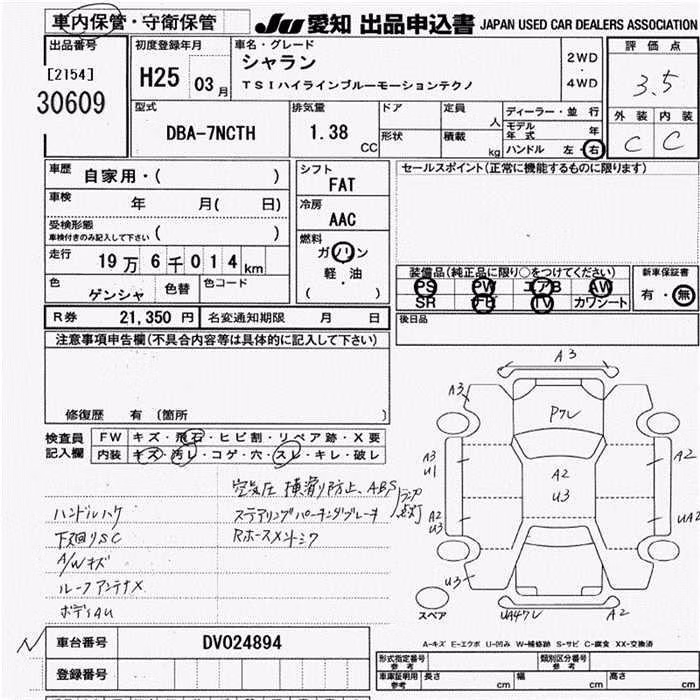 車内保管・守衛保管
JU 愛知 出品申込書 JAPAN USED CAR DEALERS ASSOCIATION
出品番号
[2154]
30609
初度登録年月
H25 03 月
車名・グレード
シャラン
TSIハイラインブルーモーションテクノ
2WD
・
4WD
評価点
3.5
外装 内装
C C
型式
DBA-7NCTH
排気量
1.38 CC
ドア
形状
定員 人
積載 kg
ディーラー・並行
モデル年式 年
ハンドル 左・右
車歴
自家用・( )
車検 年 月( 日)
受検形態
車検付きのみ記入して下さい ( )
走行
19万6千014km
色
ゲンシャ
色替
色コード
R券 21,350 円 名変通知期限 月 日
シフト
FAT
冷房
AAC
燃料
ガソリン
軽・油
( )
セールスポイント(正常に機能するものに限ります)
装備品(純正品に限り○をつけてください)
PS PW エアB AW
SR TV カワシート
新車保証書
有・無
後日品
注意事項申告欄(不具合内容等は具体的に記入して下さい)
修復歴 有 (箇所 )
検査員
記入欄
FW キズ・飛石・ヒビ割・リペア跡・X要
内装 キズ・汚レ・コゲ・穴・スレ・キレ・破レ
空気圧 横滑り防止、ABS
ステアリングパーキングブレーキ
ランプ点灯
Rホースメントミワ
ハンドルハゲ
下回りSC
A/Wキズ
ルーフアンテナX
ボディAU
A3
A3
Pワレ
A3
U1
A2
U3
A2
A2
U3
UA2
U3
UA4ワレ
A2
スペア
A-キズ E-エクボ U-凹み W-補修跡 S-サビ C-腐食 XX-交換済
車台番号 DV024894
登録番号
形式指定番号
参考
類別区分番号
参考
車庫証明用
参考
長さ cm 幅 cm 高さ cm